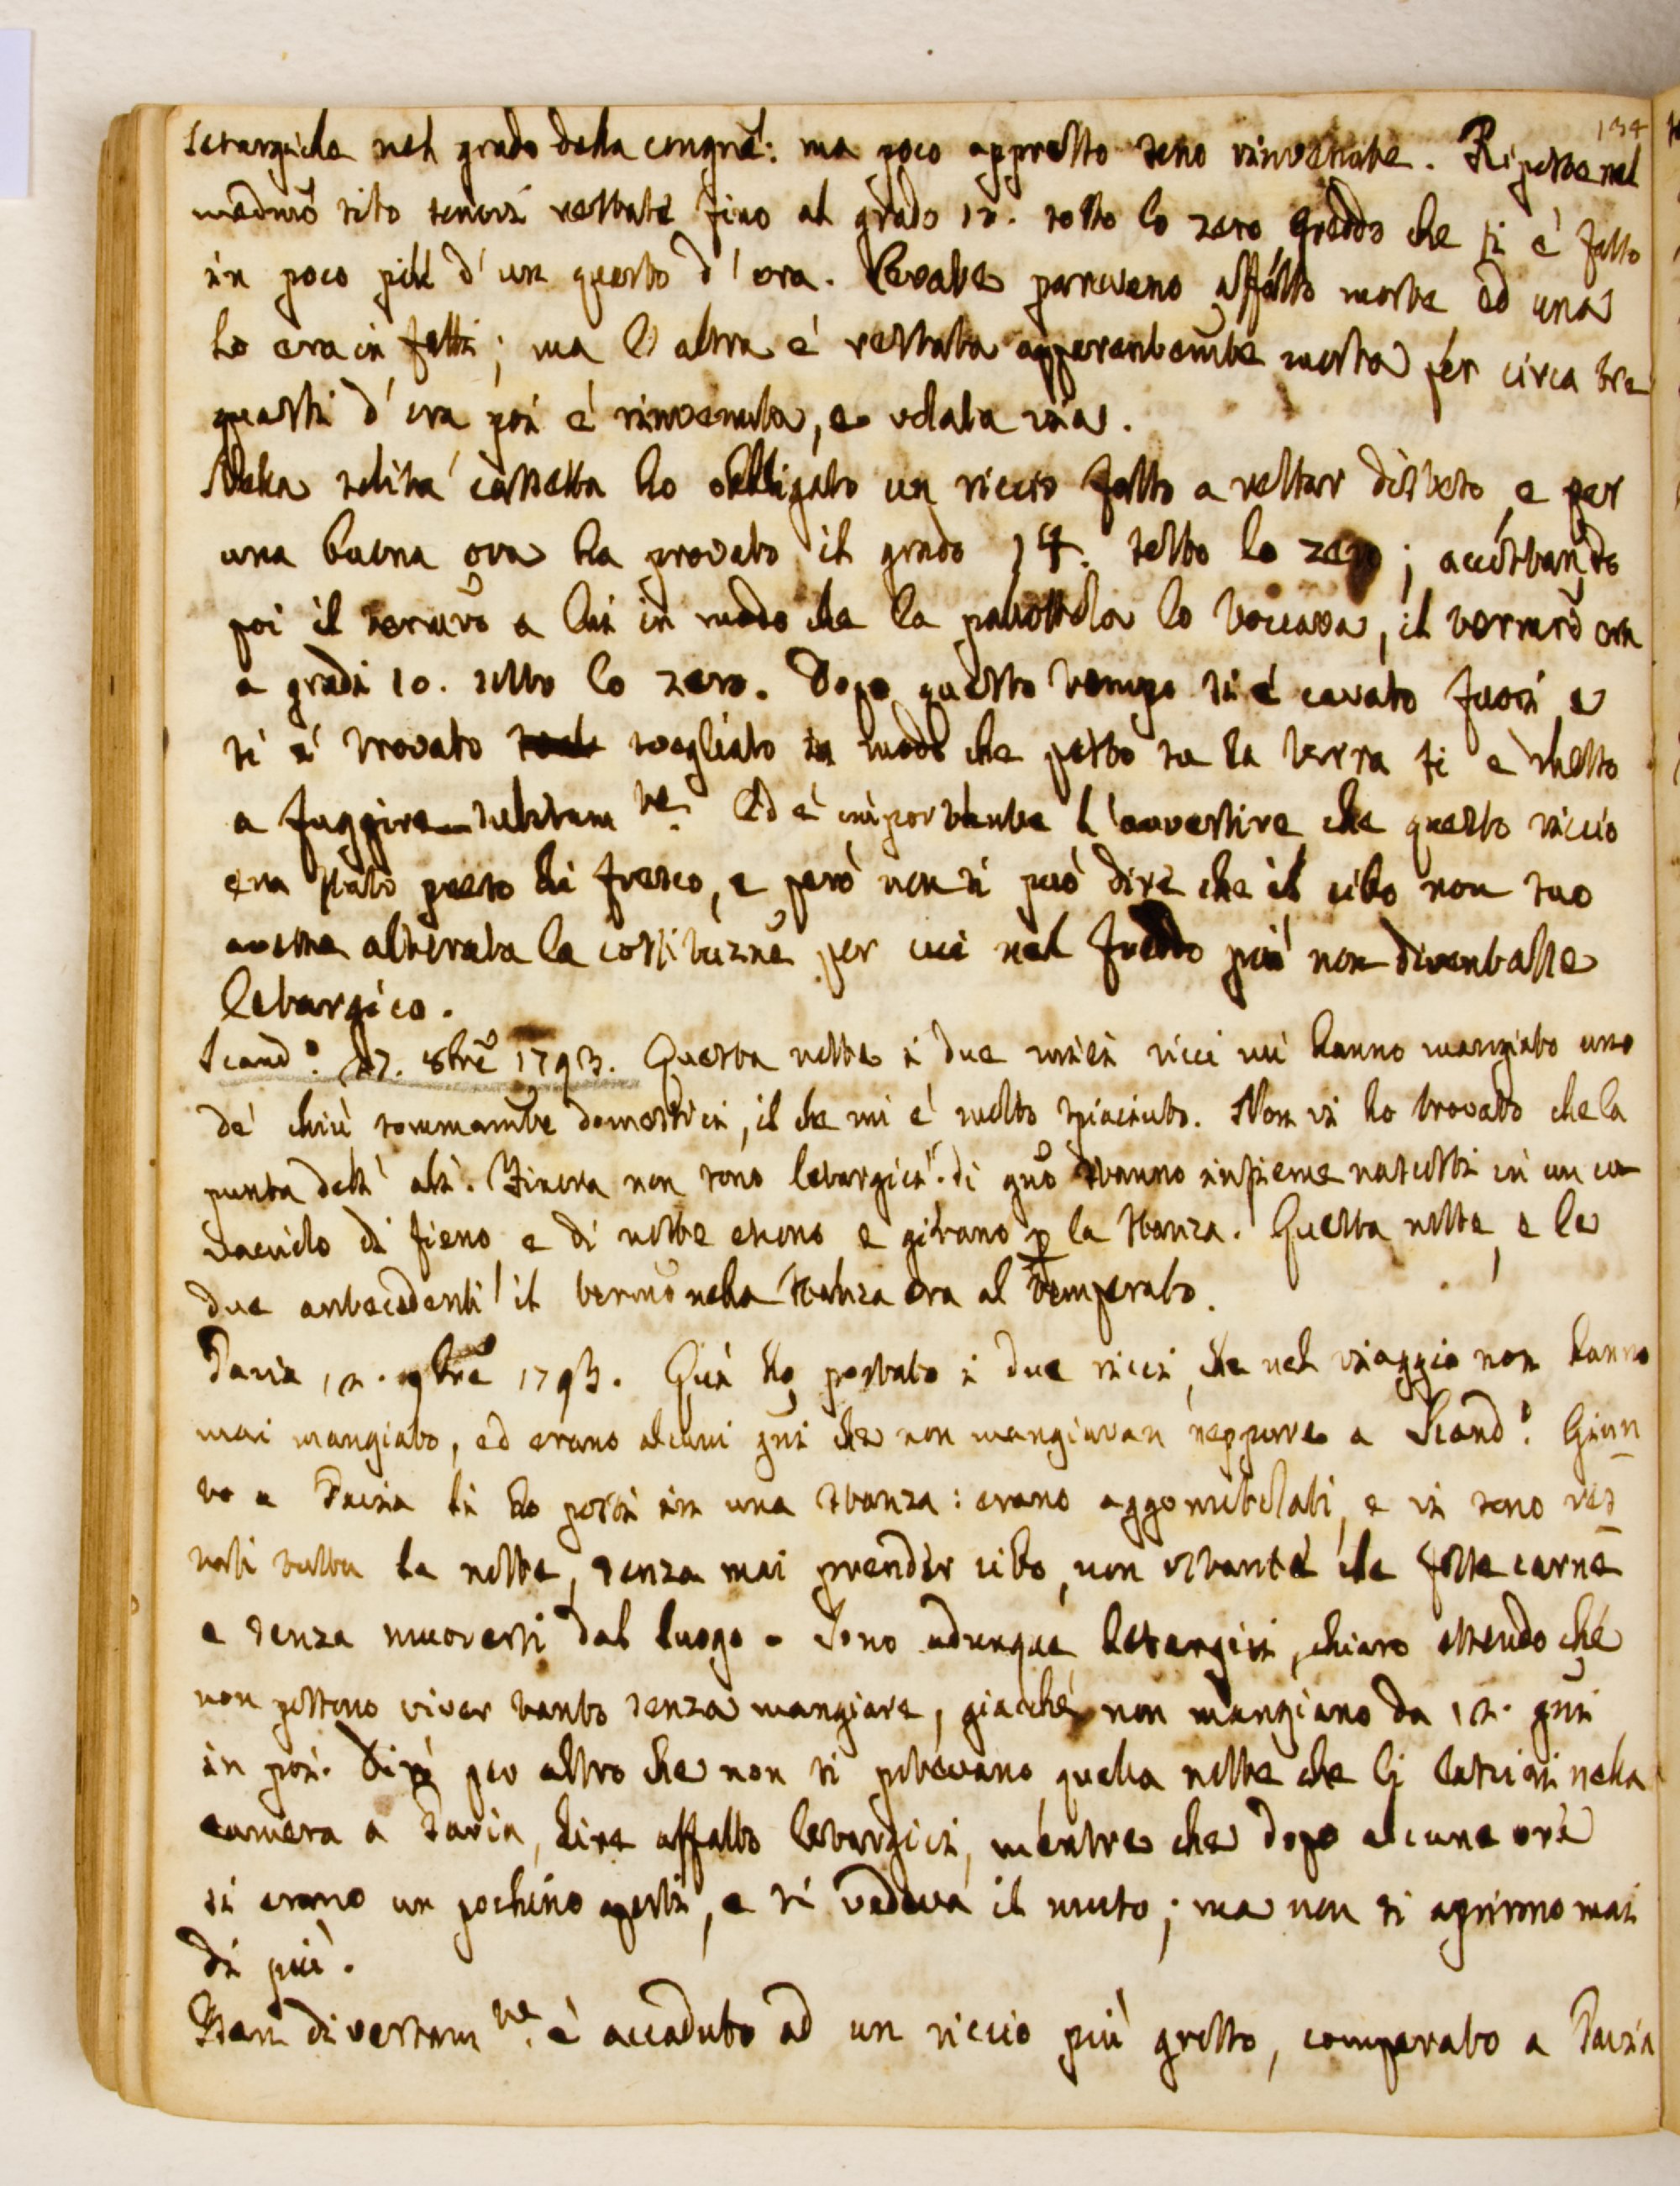 134
letargiche nel grado della congne: ma poco appresso sono rinvenute. Riposte nel
medmo sito sonovi restate fino al grado 12. sotto lo zero freddo che si è fatto
in poco più d'un quarto d'ora. Levate parevano affatto morte ed una
lo era in fatti; ma l'altra è restata apparentemte morta per circa tre
quarti d'ora poi è rinvenuta, e volata via.
Nella solita cassetta ho obbligato un riccio fatto a restar disteso, e per
una buona ora ha provato il grado 14. sotto lo zero; accostando
poi il termo a lui in modo che la pallottola lo toccava, il termo era
a gradi 10. sotto lo zero. Dopo questo tempo si è cavato fuori, e
si è trovato svegliato in modo che posto su la terra si è messo
a fuggire subitamte. Ed è importante l'avvertire che questo riccio
era stato preso di fresco, e però non si può dire che il cibo non suo
avesse alterata la costituzne per cui nel freddo più non diventasse
letargico.
Scand.º 27. 8bre 1793. Questa notte i due miei ricci mi hanno mangiato uno
de' chiù sommamte domestici, il che mi è molto spiaciuto. Non vi ho trovato che la
punta dell'ali. Finora non sono letargici. Di gno stanno insieme nascosti in un co
vacciolo di fieno e di notte escono e girano p la stanza. Questa notte, e le
due antecedenti il termo nella stanza era al temperato.
Pavia 12. 9bre 1793. Quì ho portato i due ricci, che nel viaggio non hanno
mai mangiato, ed erano alcuni gni che non mangiavan neppure a Scand.º Giun
to a Pavia li ho posti in una stanza: erano aggomitolati, e vi sono res
tati tutta la notte, senza mai prender cibo, non ostante che fosse carne
e senza muoversi dal luogo. Sono adunque letargici, chiaro essendo che
non possono viver tanto senza mangiare, giacchè non mangiano da 12. gni
in poi. Dirò per altro che non si potevano, quella notte che li lasciai nella
camera a Pavia, dire affatto letargici, mentre che dopo alcune ore
si erano un pochino aperti, e si vedeva il muso; ma non si aprirono mai
di più.
Ben diversamte è accaduto ad un riccio più grosso, comperato a Pavia